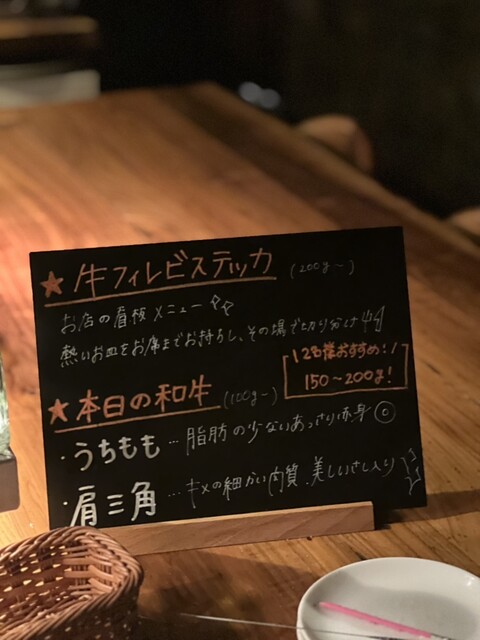 ★牛フィレビステッカ (200g〜)
お店の看板メニュー
熱いお皿をお席までお持ちし、その場で切り分け
2名様おすすめ!!
150〜200g!
★本日の和牛 (100g〜)
・うちもも…脂肪の少ないあっさり赤身◎
・肩三角…キメの細かい肉質、美しいさし入り